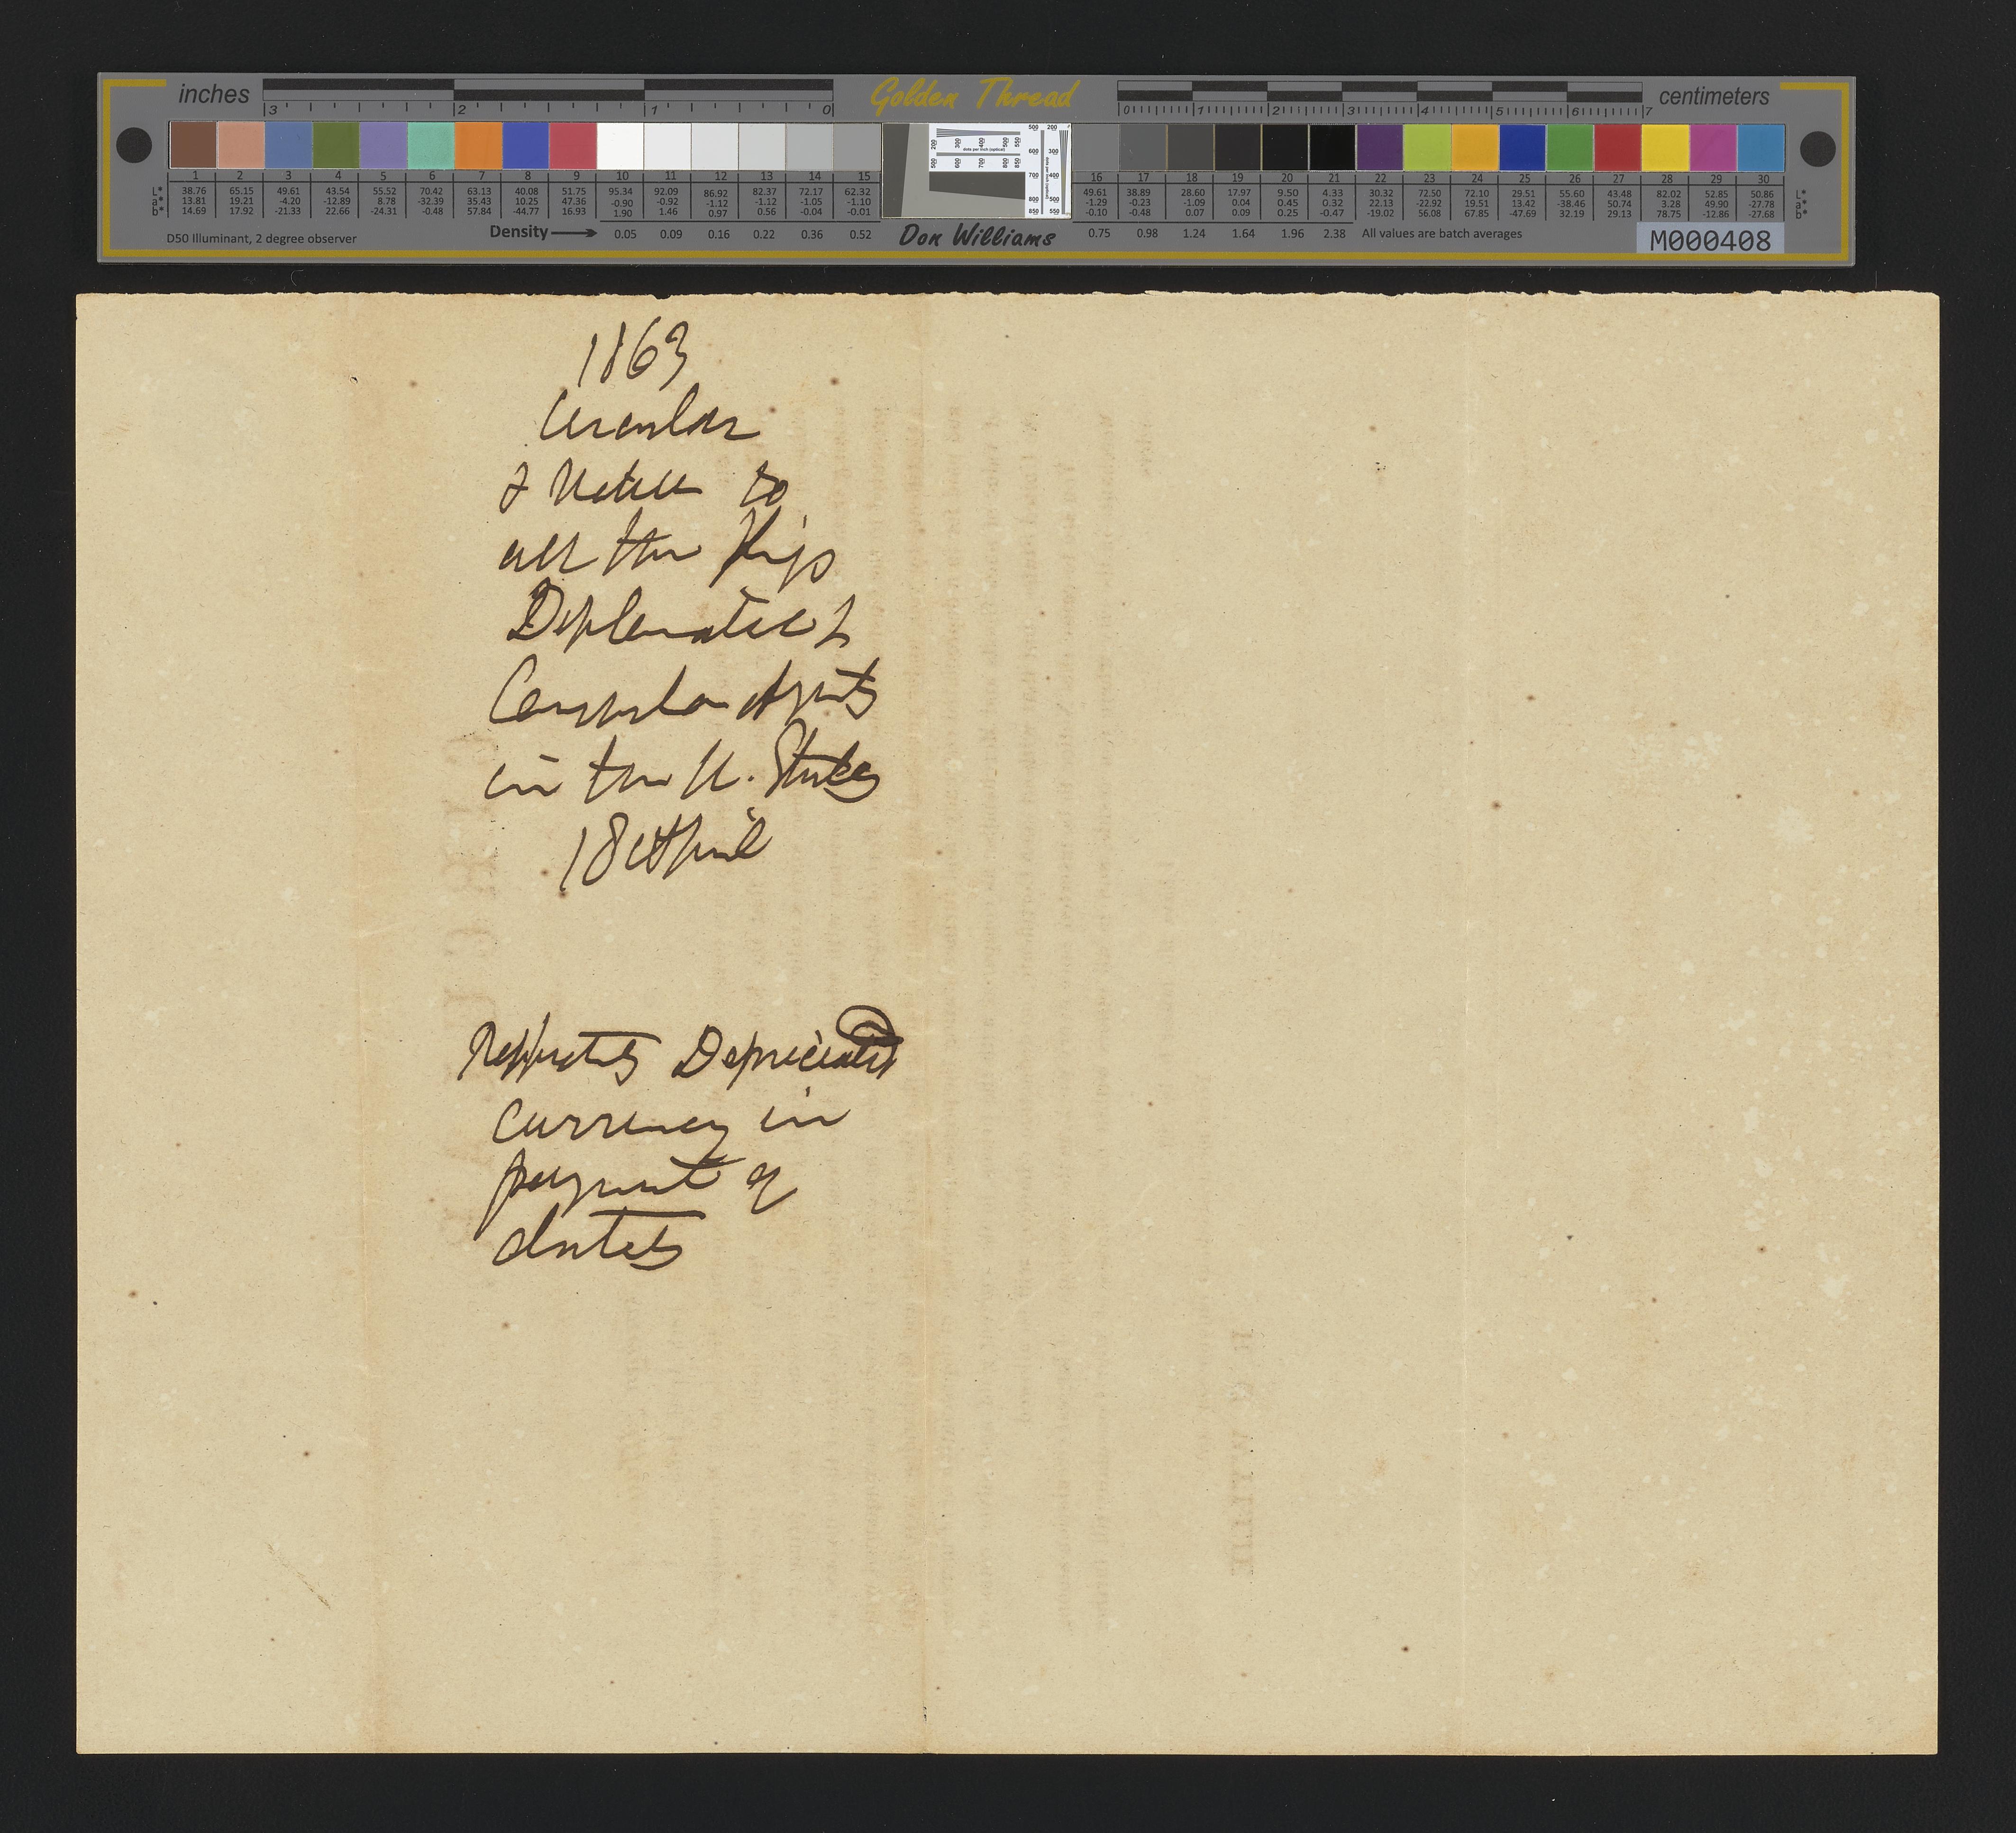 inches
3 2 1 0
Golden Thread
0 1 2 3 4 5 6 7
centimeters
1 2 3 4 5 6 7 8 9 10 11 12 13 14 15
16 17 18 19 20 21 22 23 24 25 26 27 28 29 30
L* 38.76 65.15 49.61 43.54 55.52 70.42 63.13 40.08 51.75 95.34 92.09 86.92 82.37 72.17 62.32
a* 13.81 19.21 -4.20 -12.89 8.78 -32.39 35.43 10.25 47.36 -0.90 -0.92 -1.12 -1.12 -1.05 -1.10
b* 14.69 17.92 -21.33 22.66 -24.31 -0.48 57.84 -44.77 16.93 1.90 1.46 0.97 0.56 -0.04 -0.01
49.61 38.89 28.60 17.97 9.50 4.33 30.32 72.50 72.10 29.51 55.60 43.48 82.02 52.85 50.86 L*
-1.29 -0.23 -1.09 0.04 0.45 0.32 22.13 -22.92 19.51 13.42 -38.46 50.74 3.28 49.90 -27.78 a*
-0.10 -0.48 0.07 0.09 0.25 -0.47 -19.02 56.08 67.85 -47.69 32.19 29.13 78.75 -12.86 -27.68 b*
D50 Illuminant, 2 degree observer
Density 0.05 0.09 0.16 0.22 0.36 0.52
Don Williams
0.75 0.98 1.24 1.64 1.96 2.38 All values are batch averages
M000408
1863
Circular
& Notice to
all the Kgs
Diplomatic &
Consular Agents
in the U. States
18 April
Respects Depreciated
currency in
payment of
duties